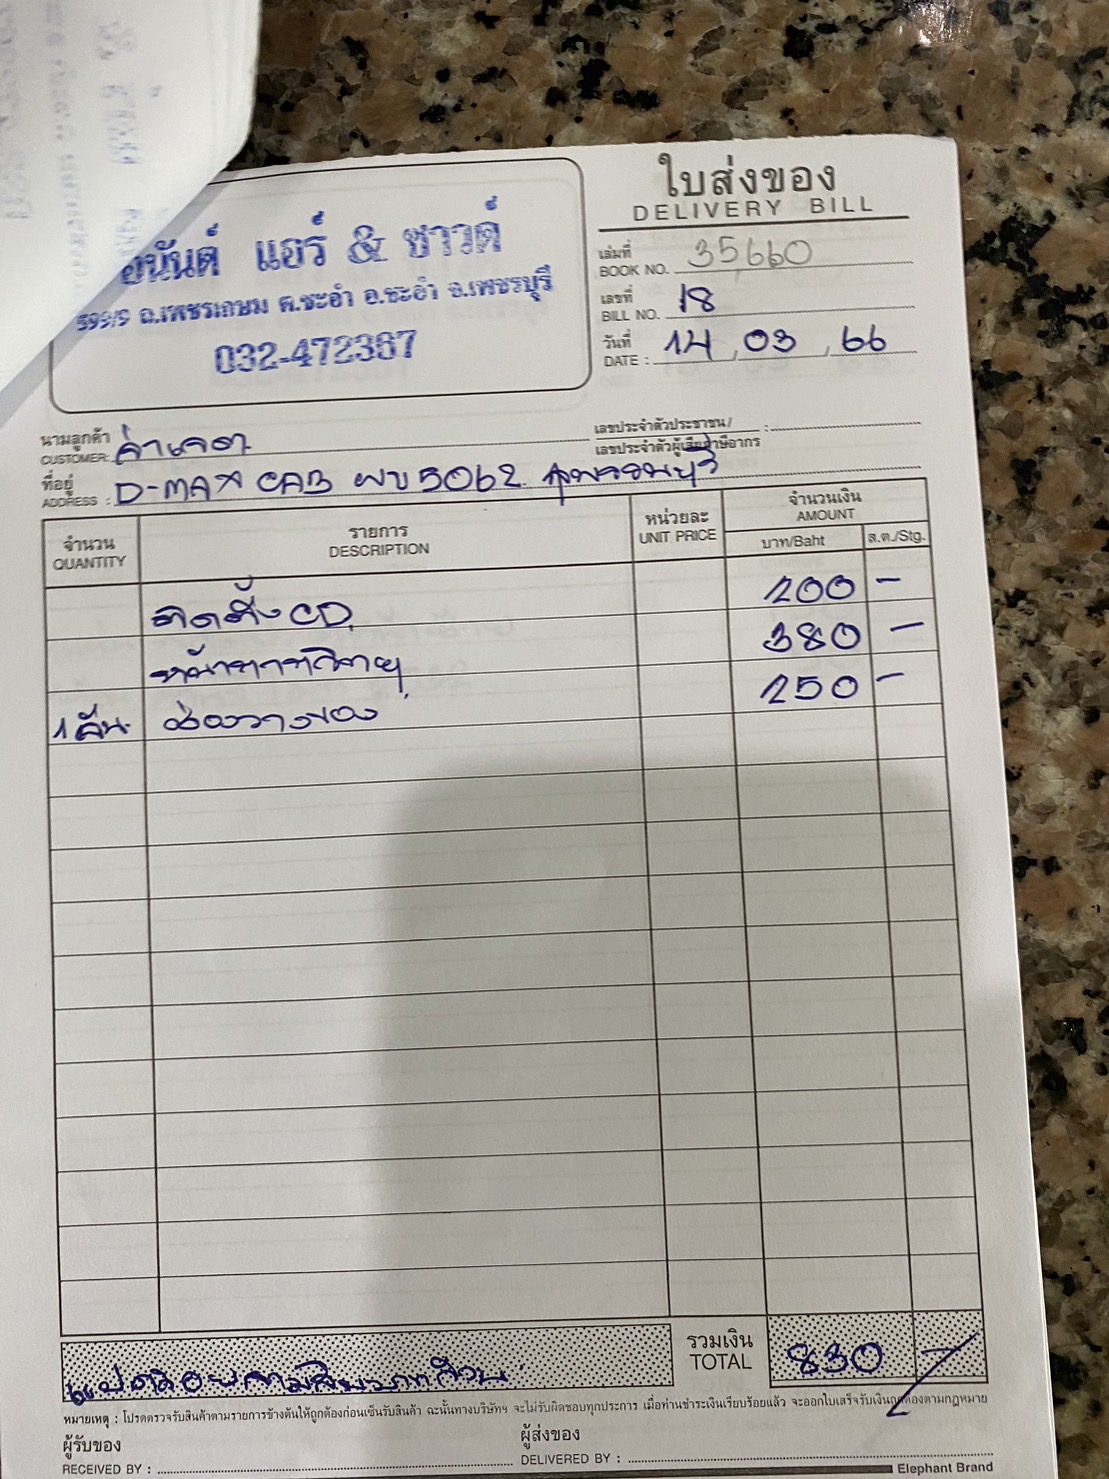 อนันต์ แอร์ & ซาวด์
599/9 ถ.เพชรเกษม ต.ชะอำ อ.ชะอำ จ.เพชรบุรี
032-472367
ใบส่งของ
DELIVERY BILL
เล่มที่
BOOK NO. 35660
เลขที่
BILL NO. 18
วันที่
DATE : 14 03 66
นามลูกค้า
CUSTOMER:
เลขประจำตัวประชาชน/ :
เลขประจำตัวผู้เสียภาษีอากร
ที่อยู่
ADDRESS : D-MAX CAB 5062
จำนวน รายการ หน่วยละ จำนวนเงิน
QUANTITY DESCRIPTION UNIT PRICE AMOUNT
บาท/Baht ส.ต./Stg.
ติดตั้ง CD 200 -
หน้ากากวิทยุ 380 -
1 อัน ช่องวางของ 250 -
รวมเงิน
TOTAL 830 -
แปดร้อยสามสิบบาทถ้วน
หมายเหตุ : โปรดตรวจรับสินค้าตามรายการข้างต้นให้ถูกต้องก่อนเซ็นรับสินค้า ฉะนั้นทางบริษัทฯ จะไม่รับผิดชอบทุกประการ เมื่อท่านชำระเงินเรียบร้อยแล้ว จะออกใบเสร็จรับเงินถูกต้องตามกฎหมาย
ผู้รับของ
RECEIVED BY :
ผู้ส่งของ
DELIVERED BY :
Elephant Brand